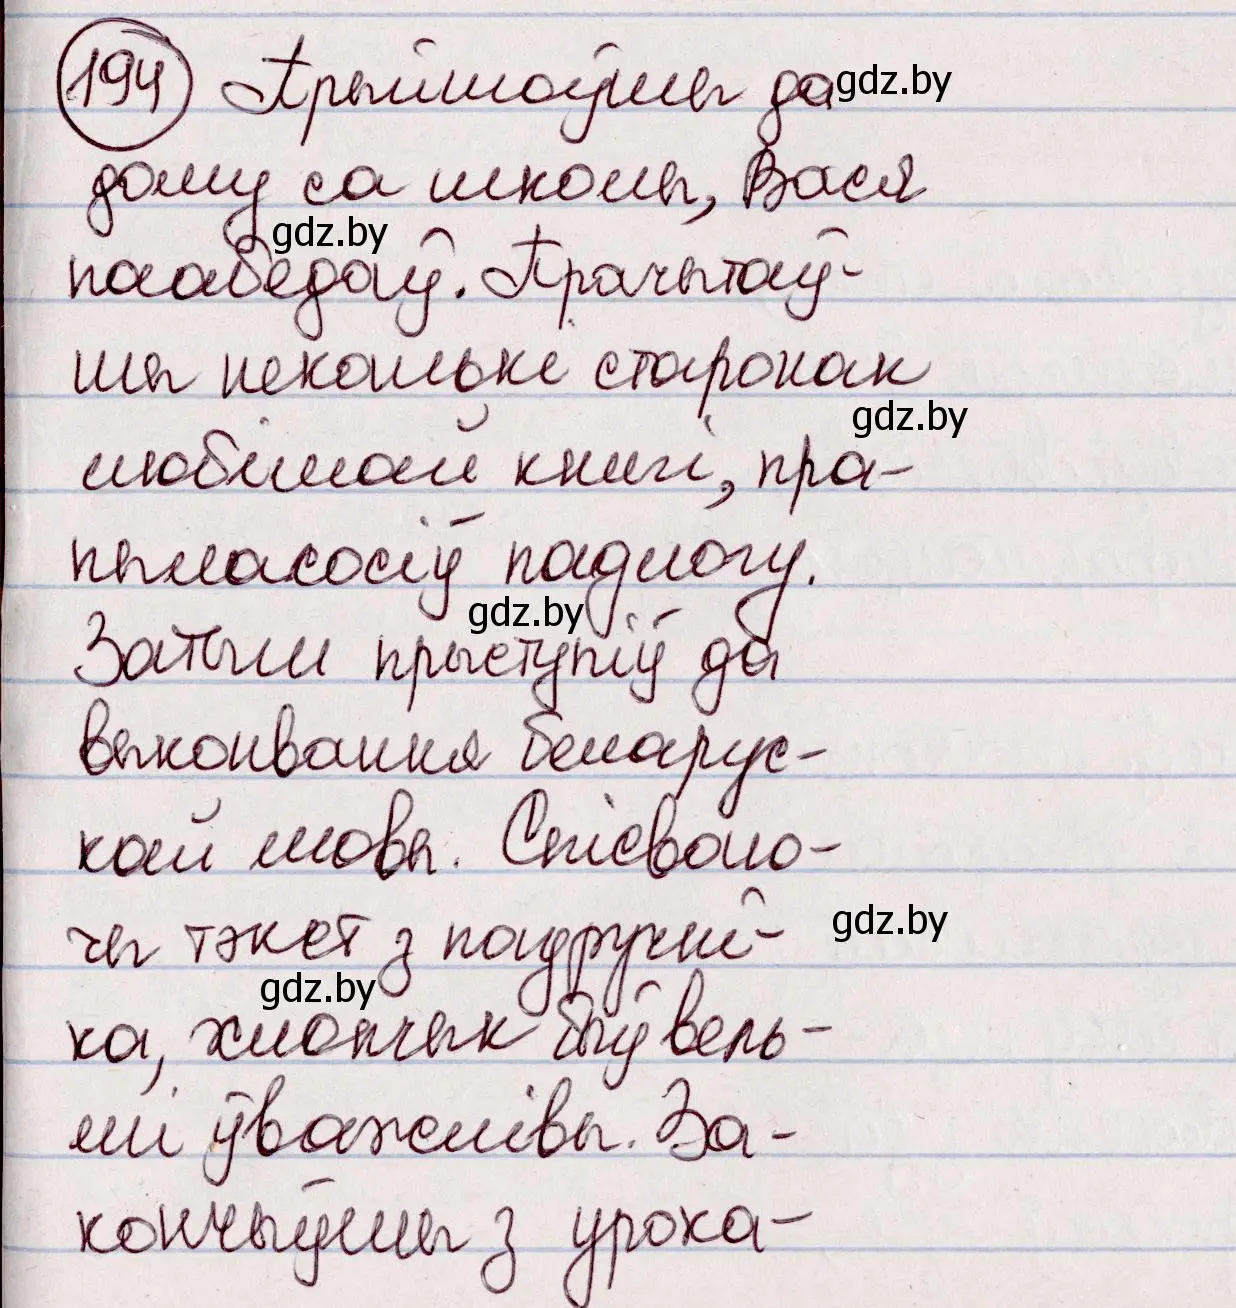 194 Прыйшоўшы да gdz.by
дому са школы, Вася
gdz.by
паабедаў. Прачытаў-
шы некалькі старонак
gdz.by
любімай кнігі, пра-
пыласосіў падлогу.
gdz.by
Затым прыступіў да
выконвання беларус-
кай мовы. Спісваю-
чы тэкст з падручні- gdz.by
gdz.by
ка, хлопчык быў вель-
мі ўважлівы. За-
кончыўшы з урока-